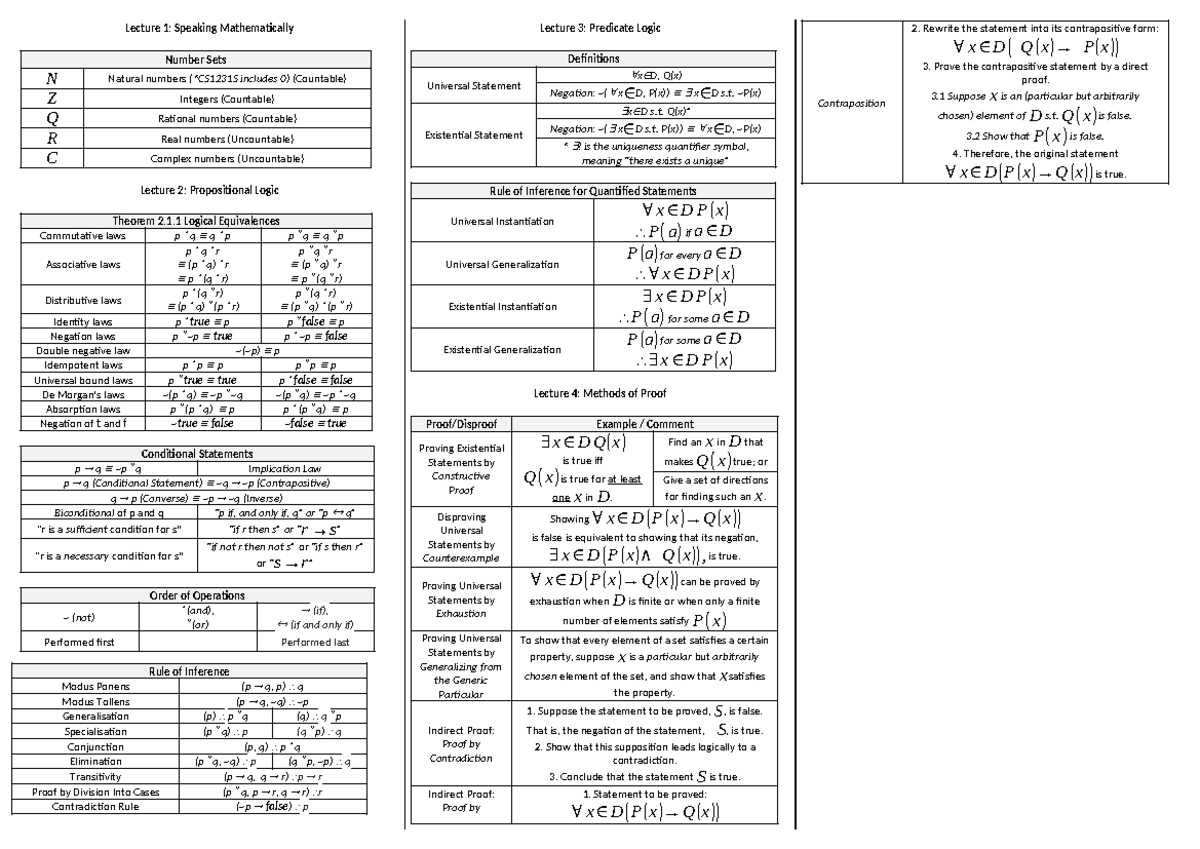 Lecture 1: Speaking Mathematically
Number Sets
N Natural numbers ( *CS1231S includes 0) (Countable)
Z Integers (Countable)
Q Rational numbers (Countable)
R Real numbers (Uncountable)
C Complex numbers (Uncountable)
Lecture 2: Propositional Logic
Theorem 2.1.1 Logical Equivalences
Commutative laws p ˄ q ≡ q ˄ p p ˅ q ≡ q ˅ p
Associative laws
p ˄ q ˄ r
≡ (p ˄ q) ˄ r
≡ p ˄ (q ˄ r)
p ˅ q ˅ r
≡ (p ˅ q) ˅ r
≡ p ˅ (q ˅ r)
Distributive laws
p ˄ (q ˅ r)
≡ (p ˄ q) ˅ (p ˄ r)
p ˅ (q ˄ r)
≡ (p ˅ q) ˄ (p ˅ r)
Identity laws p ˄ true ≡ p p ˅ false ≡ p
Negation laws p ˅ ~p ≡ true p ˄ ~p ≡ false
Double negative law ~(~p) ≡ p
Idempotent laws p ˄ p ≡ p p ˅ p ≡ p
Universal bound laws p ˅ true ≡ true p ˄ false ≡ false
De Morgan's laws ~(p ˄ q) ≡ ~p ˅ ~q ~(p ˅ q) ≡ ~p ˄ ~q
Absorption laws p ˅ (p ˄ q) ≡ p p ˄ (p ˅ q) ≡ p
Negation of t and f ~true ≡ false ~false ≡ true
Conditional Statements
p → q ≡ ~p ˅ q Implication Law
p → q (Conditional Statement) ≡ ~q → ~p (Contrapositive)
q → p (Converse) ≡ ~p → ~q (Inverse)
Biconditional of p and q "p if, and only if, q" or "p ↔ q"
"r is a sufficient condition for s" "if r then s" or "r → s"
"r is a necessary condition for s"
"if not r then not s" or "if s then r"
or "s → r"
Order of Operations
~ (not)
˄ (and),
˅ (or)
→ (if),
↔ (if and only if)
Performed first Performed last
Rule of Inference
Modus Ponens (p → q, p) ∴ q
Modus Tollens (p → q, ~q) ∴ ~p
Generalisation (p) ∴ p ˅ q (q) ∴ q ˅ p
Specialisation (p ˅ q) ∴ p (q ˅ p) ∴ q
Conjunction (p, q) ∴ p ˄ q
Elimination (p ˅ q, ~q) ∴ p (q ˅ p, ~p) ∴ q
Transitivity (p → q, q → r) ∴ p → r
Proof by Division Into Cases (p ˅ q, p → r, q → r) ∴ r
Contradiction Rule (~p → false) ∴ p
Lecture 3: Predicate Logic
Definitions
Universal Statement
∀x∈D, Q(x)
Negation: ~( ∀x∈D, P(x)) ≡ ∃x∈D s.t. ~P(x)
Existential Statement
∃x∈D s.t. Q(x)*
Negation: ~( ∃x∈D s.t. P(x)) ≡ ∀x∈D, ~P(x)
* ∃! is the uniqueness quantifier symbol,
meaning "there exists a unique"
Rule of Inference for Quantified Statements
Universal Instantiation
∀ x ∈ D P(x)
∴ P(a) if a ∈ D
Universal Generalization
P(a) for every a ∈ D
∴ ∀ x ∈ D P(x)
Existential Instantiation
∃ x ∈ D P(x)
∴ P(a) for some a ∈ D
Existential Generalization
P(a) for some a ∈ D
∴ ∃ x ∈ D P(x)
Lecture 4: Methods of Proof
Proof/Disproof Example / Comment
Proving Existential
Statements by
Constructive
Proof
∃ x ∈ D Q(x)
is true iff
Q(x) is true for at least
one x in D.
Find an x in D that
makes Q(x) true; or
Give a set of directions
for finding such an x.
Disproving
Universal
Statements by
Counterexample
Showing ∀ x ∈ D(P(x) → Q(x))
is false is equivalent to showing that its negation,
∃ x ∈ D(P(x) ∧ Q(x)), is true.
Proving Universal
Statements by
Exhaustion
∀ x ∈ D(P(x) → Q(x)) can be proved by
exhaustion when D is finite or when only a finite
number of elements satisfy P(x)
Proving Universal
Statements by
Generalizing from
the Generic
Particular
To show that every element of a set satisfies a certain
property, suppose x is a particular but arbitrarily
chosen element of the set, and show that x satisfies
the property.
Indirect Proof:
Proof by
Contradiction
1. Suppose the statement to be proved, S, is false.
That is, the negation of the statement, S, is true.
2. Show that this supposition leads logically to a
contradiction.
3. Conclude that the statement S is true.
Indirect Proof:
Proof by
1. Statement to be proved:
∀ x ∈ D(P(x) → Q(x))
Contraposition
2. Rewrite the statement into its contrapositive form:
∀ x ∈ D( Q(x) → P(x))
3. Prove the contrapositive statement by a direct
proof.
3.1 Suppose x is an (particular but arbitrarily
chosen) element of D s.t. Q(x) is false.
3.2 Show that P(x) is false.
4. Therefore, the original statement
∀ x ∈ D(P(x) → Q(x)) is true.